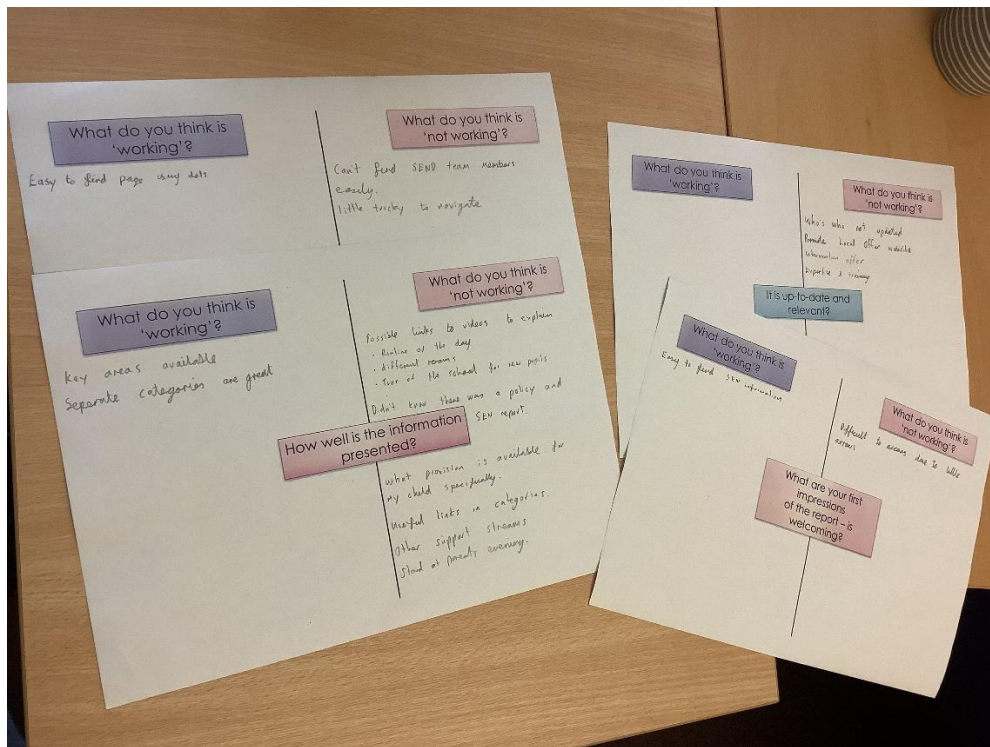 What do you think is
'working'?
Easy to find page using dots
What do you think is
'not working'?
Can't find SEND team members
easily.
little tricky to navigate
What do you think is
'working'?
Key areas available
Separate categories are great
What do you think is
'not working'?
Possible links to videos to explain
· Routine of the day
· different rooms
· Tour of the school for new pupils
Didn't know there was a policy and
SEN report.
How well is the information
presented?
What provision is available for
my child specifically.
Useful links in categories.
Other support streams
Stand at parents evening.
What do you think is
'working'?
What do you think is
'not working'?
Who's who not updated
Provider Local Offer website
Intervention offer
Expertise & training
It is up-to-date and
relevant?
What do you think is
'working'?
Easy to find SEN information
What do you think is
'not working'?
Difficult to access due to little
arrows
What are your first
impressions
of the report – is
welcoming?